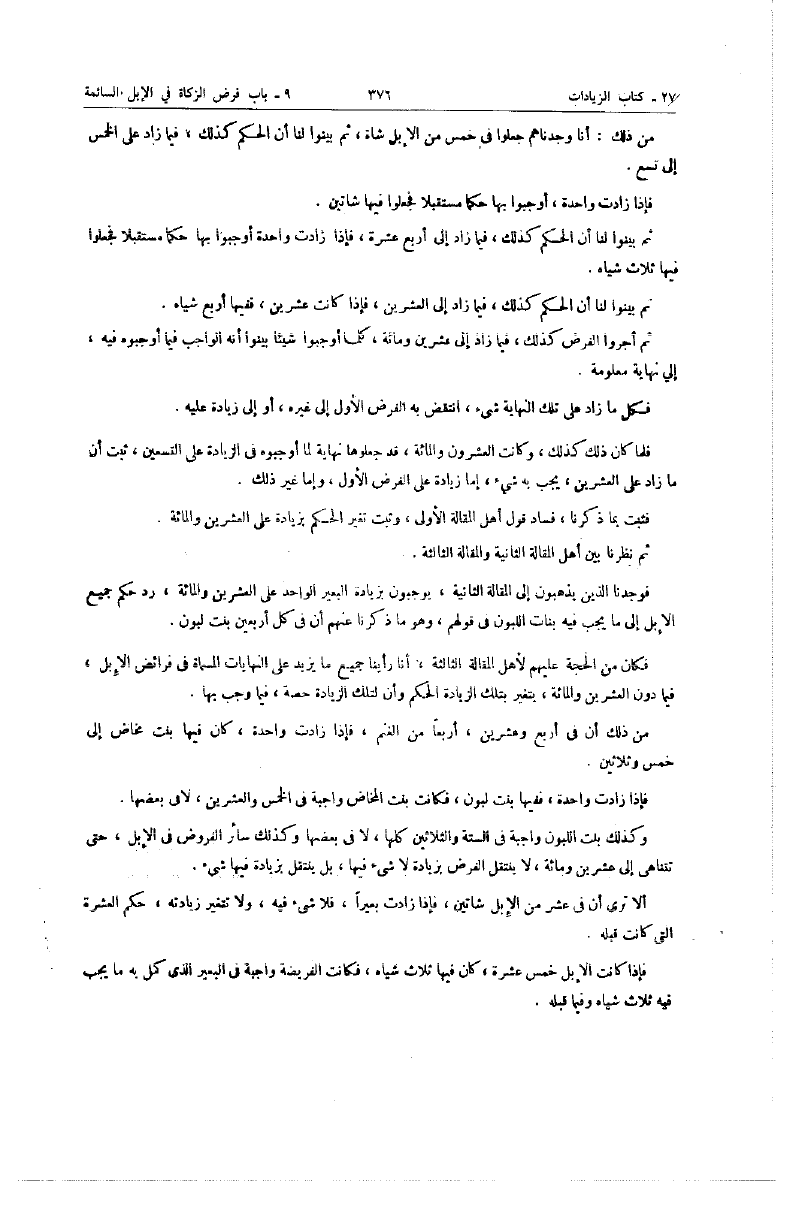 ٢٧ - كتاب الزيادات ٣٧٦ ٩ - باب فرض الزكاة في الإبل السائمة
من ذلك : أنا وجدناهم جعلوا فى خمس من الإبل شاة ، ثم بينوا لنا أن الحكم كذلك ، فيما زاد على الخمس
إلى تسع .
فإذا زادت واحدة ، أوجبوا بها حكما مستقبلا فجعلوا فيها شاتين .
ثم بينوا لنا أن الحكم كذلك ، فيما زاد إلى أربع عشرة ، فإذا زادت واحدة أوجبوا بها حكما مستقبلا فجعلوا
فيها ثلاث شياه .
ثم بينوا لنا أن الحكم كذلك ، فيما زاد إلى العشرين ، فإذا كانت عشرين ، ففيها أربع شياه .
ثم أجروا الفرض كذلك ، فيما زاد إلى عشرين ومائة ، كلما أوجبوا شيئا بينوا أنه الواجب فيما أوجبوه فيه ،
إلي نهاية معلومة .
فكل ما زاد على تلك النهاية شيء ، انتقض به الفرض الأول إلى غيره ، أو إلى زيادة عليه .
فلما كان ذلك كذلك ، وكانت العشرون والمائة ، قد جعلوها نهاية لما أوجبوه فى الزيادة على التسعين ، ثبت أن
ما زاد على العشرين ، يجب به شيء ، إما زيادة على الفرض الأول ، وإما غير ذلك .
فثبت بما ذكرنا ، فساد قول أهل المقالة الأولى ، وثبت تغير الحكم بزيادة على العشرين والمائة .
ثم نظرنا بين أهل المقالة الثانية والمقالة الثالثة .
فوجدنا الذين يذهبون إلى المقالة الثانية ، يوجبون بزيادة البعير الواحد على العشرين والمائة ، رد حكم جميع
الإبل إلى ما يجب فيه بنات اللبون فى قولهم ، وهو ما ذكرنا عنهم أن فى كل أربعين بنت لبون .
فكان من الحجة عليهم لأهل المقالة الثالثة ، أنا رأينا جميع ما يزيد على النهايات المسماة فى فرائض الإبل ،
فيما دون العشرين والمائة ، يتغير بتلك الزيادة الحكم وأن لتلك الزيادة حصة ، فيما وجب بها .
من ذلك أن فى أربع وعشرين ، أربعاً من الغنم ، فإذا زادت واحدة ، كان فيها بنت مخاض إلى
خمس وثلاثين .
فإذا زادت واحدة ، ففيها بنت لبون ، فكانت بنت المخاض واجبة فى الخمس والعشرين ، لافى بعضها .
وكذلك بنت اللبون واجبة فى الستة والثلاثين كلها ، لا فى بعضها وكذلك سائر الفروض فى الإبل ، حتى
تتناهى إلى عشرين ومائة ، لا ينتقل الفرض بزيادة لا شيء فيها ، بل ينتقل بزيادة فيها شيء .
ألا ترى أن فى عشر من الإبل شاتين ، فإذا زادت بعيراً ، فلا شيء فيه ، ولا تتغير زيادته ، حكم العشرة
التى كانت قبله .
فإذا كانت الإبل خمس عشرة ، كان فيها ثلاث شياه ، فكانت الفريضة واجبة فى البعير الذى كمل به ما يجب
فيه ثلاث شياه وفيما قبله .